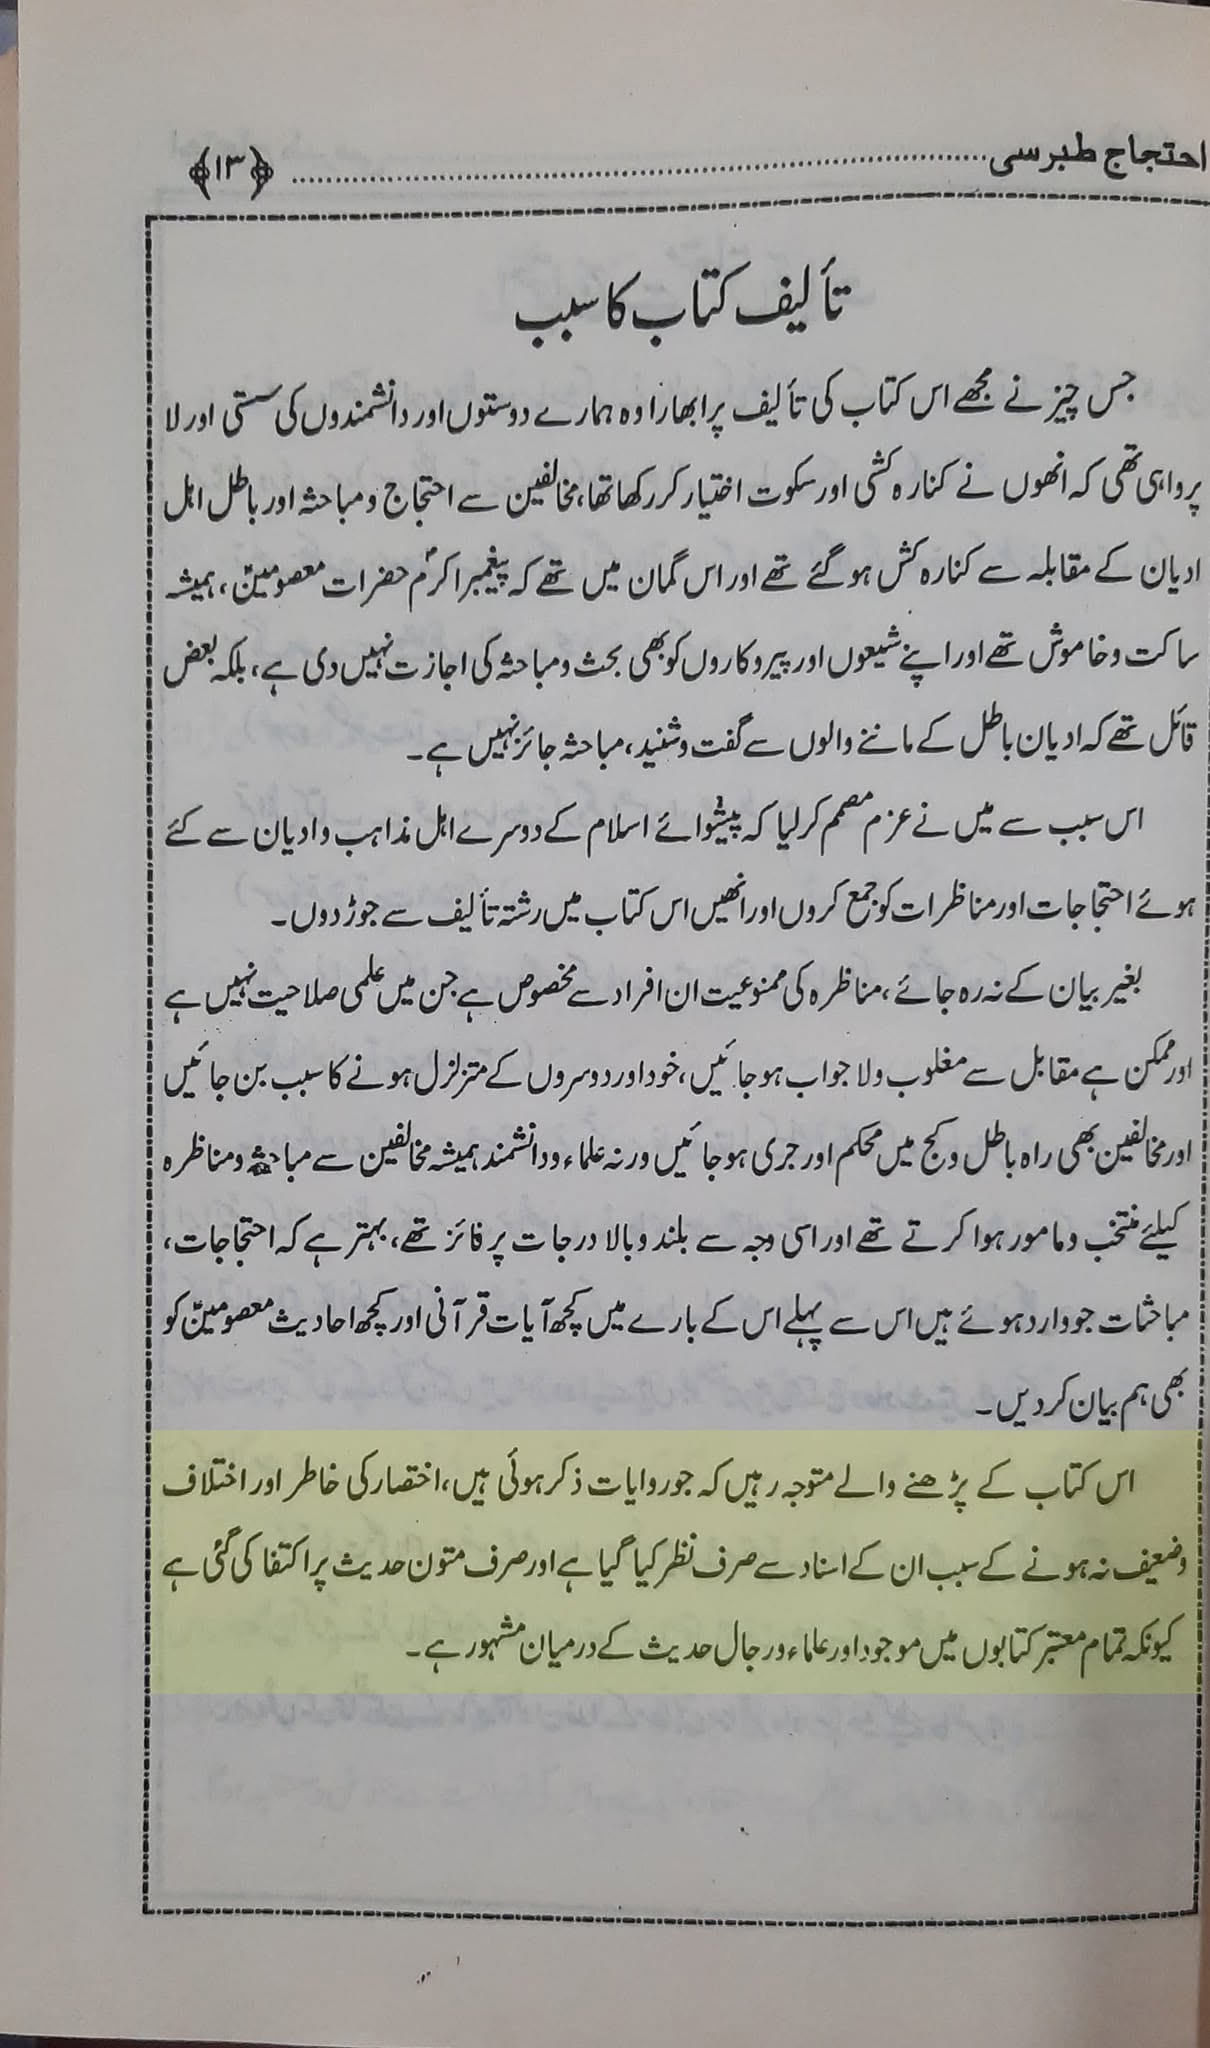 احتجاج طبرسی ........ ﴿۱۳﴾
تألیف کتاب کا سبب
جس چیز نے مجھے اس کتاب کی تألیف پر ابھارا وہ ہمارے دوستوں اور دانشمندوں کی سستی اور لا
پرواہی تھی کہ انھوں نے کنارہ کشی اور سکوت اختیار کر رکھا تھا، مخالفین سے احتجاج و مباحثہ اور باطل اہل
ادیان کے مقابلہ سے کنارہ کش ہو گئے تھے اور اس گمان میں تھے کہ پیغمبر اکرمؐ حضرات معصومینؑ، ہمیشہ
ساکت و خاموش تھے اور اپنے شیعوں اور پیروکاروں کو بھی بحث و مباحثہ کی اجازت نہیں دی ہے، بلکہ بعض
قائل تھے کہ ادیان باطل کے ماننے والوں سے گفت و شنید، مباحثہ جائز نہیں ہے۔
اس سبب سے میں نے عزم مصمم کر لیا کہ پیشوائے اسلام کے دوسرے اہل مذاہب و ادیان سے کئے
ہوئے احتجاجات اور مناظرات کو جمع کروں اور انھیں اس کتاب میں رشتہ تألیف سے جوڑ دوں۔
بغیر بیان کے نہ رہ جائے، مناظرہ کی ممنوعیت ان افراد سے مخصوص ہے جن میں علمی صلاحیت نہیں ہے
اور ممکن ہے مقابل سے مغلوب و لا جواب ہو جائیں، خود اور دوسروں کے متزلزل ہونے کا سبب بن جائیں
اور مخالفین بھی راہ باطل و کج میں محکم اور جری ہو جائیں ورنہ علماء و دانشمند ہمیشہ مخالفین سے مباحثہ و مناظرہ
کیلئے منتخب و مامور ہوا کرتے تھے اور اسی وجہ سے بلند و بالا درجات پر فائز تھے، بہتر ہے کہ احتجاجات،
مباحثات جو وارد ہوئے ہیں اس سے پہلے اس کے بارے میں کچھ آیات قرآنی اور کچھ احادیث معصومینؑ کو
بھی ہم بیان کر دیں۔
اس کتاب کے پڑھنے والے متوجہ رہیں کہ جو روایات ذکر ہوئی ہیں، اختصار کی خاطر اور اختلاف
و ضعیف نہ ہونے کے سبب ان کے اسناد سے صرف نظر کیا گیا ہے اور صرف متون حدیث پر اکتفا کی گئی ہے
کیونکہ تمام معتبر کتابوں میں موجود اور علماء و رجال حدیث کے درمیان مشہور ہے۔